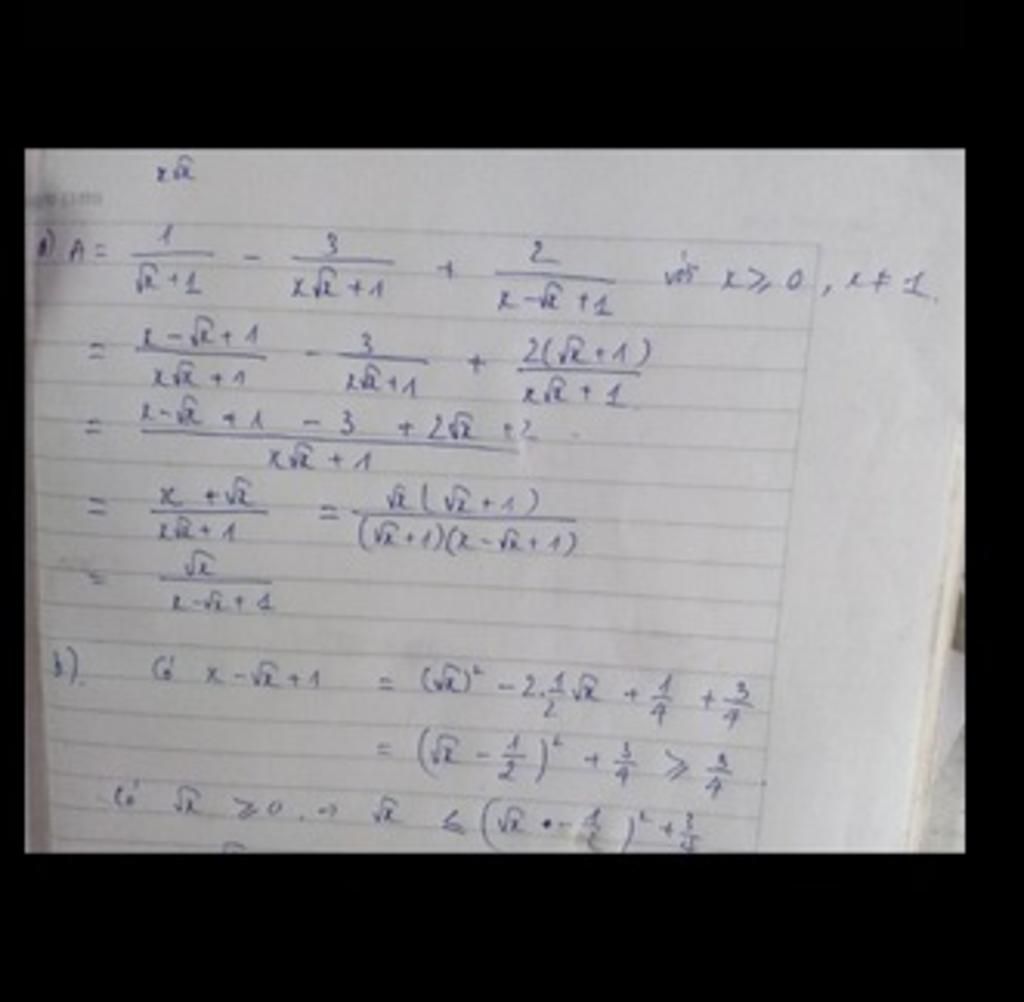 x√x
a) A = 1/(√x + 1) - 3/(x√x + 1) + 2/(x - √x + 1) với x ⩾ 0, x ≠ 1.
= (x - √x + 1)/(x√x + 1) - 3/(x√x + 1) + 2(√x + 1)/(x√x + 1)
= (x - √x + 1 - 3 + 2√x + 2)/(x√x + 1)
= (x + √x)/(x√x + 1) = √x(√x + 1)/((√x + 1)(x - √x + 1))
= √x/(x - √x + 1)
b). Có x - √x + 1 = (√x)² - 2.1/2√x + 1/4 + 3/4
= (√x - 1/2)² + 3/4 ⩾ 3/4.
Có √x ⩾ 0. → √x ≤ (√x - 1/2)² + 3/4